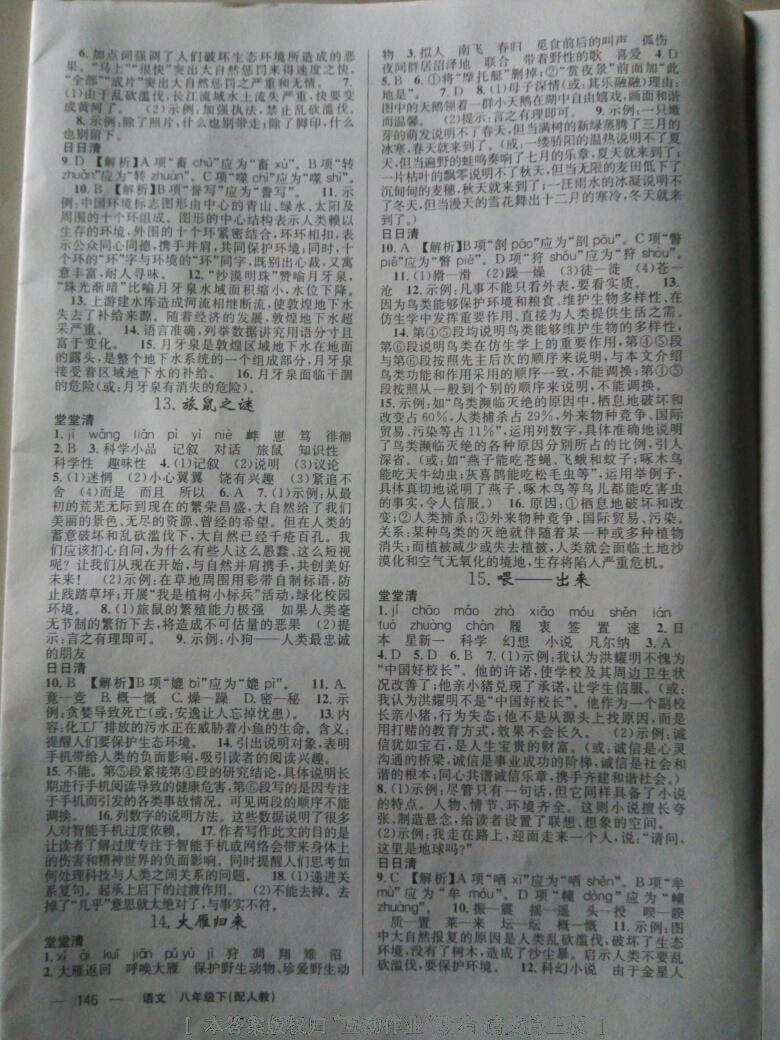 6.加点词强调了人们破坏生态环境所造成的恶
果。“马上”“很快”突出大自然惩罚来得速度之快。
“全部”“成片”突出大自然惩罚之严重和无情。 7.
(1)由于乱砍滥伐，长江流域水土流失严重，快要变
成黄河了。 (2)示例：加强执法，禁止乱砍滥伐。
8.示例：除了照片，什么也别带走；除了脚印，什么
也别留下。
日日清
9.D 【解析】A项“畜 chù”应为“畜 xù”。B项“转
zhuǎn”应为“转 zhuàn”。C项“噬 chì”应为“噬 shì”。
10.B 【解析】B项“誉写”应为“誊写”。 11.示
例：中国环境标志图形由中心的青山、绿水、太阳及
周围的十个环组成。图形的中心结构表示人类赖以
生存的环境，外围的十个环紧密结合，环环相扣，表
示公众同心同德，携手并肩，共同保护环境；同时，十
个环的“环”字与环境的“环”同字，既别出心裁，又寓
意丰富，耐人寻味。 12.“沙漠明珠”赞喻月牙泉，
“珠光渐暗”比喻月牙泉水域面积缩小，水位下降。
13.上游建水库造成河流相继断流，使敦煌地下水
失去了补给来源。随着经济的发展，敦煌地下水超
采严重。 14.语言准确，列举数据讲究用语分寸且
富于变化。 15.月牙泉是敦煌区域地下水在地面
的露头，是整个地下水系统的一个组成部分，月牙泉
接受着区域地下水的补给。 16.月牙泉面临干涸
的危险(或：月牙泉有消失的危险)。
13.旅鼠之谜
堂堂清
1.jī wǎng liǎn pì yì niè 衅 崽 笃 徘徊
2.B 3.科学小品 记叙 对话 旅鼠 知识性
科学性 趣味性 4.(1)记叙 (2)说明 (3)议论
5.(1)迷惘 (2)小心翼翼 饶有兴趣 (3)紧追不
舍 (4)而是 而且 所以 6.A 7.(1)示例：从最
初的荒芜无际到现在的繁荣昌盛，大自然给了我们
美丽的景色、无尽的资源、曾经的希望。但在人类的
蓄意破坏和乱砍滥伐下，大自然已经千疮百孔。我
们应该扪心自问，为什么有些人这么愚蠢、这么短视
呢？让我们从现在开始，与自然并肩携手，共创美好
未来！ (2)示例：在草地周围用彩带自制标语，防
止践踏草坪；开展“我是植树小标兵”活动，绿化校园
环境。 8.(1)旅鼠的繁殖能力极强 如果人类毫
无节制的繁衍下去，将造成不可估量的恶果 (2)提
示：言之有理即可。 9.示例：小狗——人类最忠诚
的朋友
日日清
10.B 【解析】B项“媲 bì”应为“媲 pì”。 11.A.
竟—竞 B.概—慨 C.燥—躁 D.密—秘 12.示
例：贪婪导致死亡(或：安逸让人忘掉忧患)。 13.内
容：化工厂排放的污水正在威胁着小鱼的生命。含义：
提醒人们要保护生态环境。 14.引出说明对象，表明
手机带给人类的负面影响，吸引读者的阅读兴趣。
15.不能。第⑤段紧接第④段的研究结论，具体说明长
期进行手机阅读导致的健康危害，第⑥段写的是因专注
于手机而引发的各类事故情况。可见两段的顺序不能
调换。 16.列数字的说明方法。这些数据说明了很多
人对智能手机过度依赖。 17.作者写作此文的目的是
让读者了解过度专注于智能手机或网络会带来身体上
的伤害和精神世界的负面影响。同时提醒人们思考如
何处理科技与人类之间关系的问题。 18.(1)递进关
系复句。起承上启下的过渡作用。 (2)不能去掉。去
掉了“几乎”意思就太绝对了，与事实不符。
14.大雁归来
堂堂清
1.xī ǎi kuī jiān pú yù jì 狩 凋 翔 雉 沼
2.大雁返回 呼唤大雁 保护野生动物、珍爱野生动
物 3.拟人 南飞 春归 觅食前后的叫声 孤伤
夜间群居沼泽地 联合 带着野性的歌 喜爱 4.D
5.B 6.①将“摩托艇”删掉；②“赏夜景”前面加“此
地是”。 7.D 8.(1)母子深情(或：其乐融融)理由：
图中的天鹅领着一群小天鹅在湖中自由嬉戏，画面和谐
而温馨。 (2)提示：言之有理即可。 9.示例：一只嫩
芽的萌发说明不了春天，但当满树的新绿蒸腾了三月的
冰寒，春天就来到了。(或：一缕骄阳的温热说明不了夏
天，但当遍野的蛙鸣奏响了七月的乐章，夏天就来到了；
一片枯叶的飘零说明不了秋天，但当无限的麦田低下了
沉甸甸的麦穗，秋天就来到了；一汪雨水的冰凝说明不
了冬天，但当漫天的雪花舞出十二月的寒冷，冬天就来
到了。)
日日清
10.A 【解析】B项“剖 pāo”应为“剖 pōu”。C项“瞥
piē”应为“瞥 piē”。D项“狩 shǒu”应为“狩 shòu”。
11.(1)猾—滑 (2)躁—燥 (3)徒—徙 (4)苍—
沧 12.示例：凡事不能只看外表，要看实质。 13.
因为鸟类能够保护环境和粮食、维护生物多样性、在
仿生学中发挥重要作用、直接为人类提供生活之需。
14.第④⑤段均说明鸟类能够维护生物的多样性，
第⑥段说明鸟类在仿生学上的重要作用，第④⑤段
与第⑥段按照先主后次的顺序来说明，与本文介绍
鸟类功能和作用采用的顺序一致，不能调换；第④⑤
段按照从一般到个别的顺序来说明，不能调换。
15.示例：如“鸟类濒临灭绝的原因中，栖息地破坏和
改变占60％，人类捕杀占29％，外来物种竞争、国际
贸易、污染等占11％”，运用列数字，具体准确地说明
了鸟类濒临灭绝的各种原因分别所占的比例，引人
深省。(或：如“燕子能吃苍蝇、飞蛾和蚊子；啄木鸟
能吃天牛幼虫；灰喜鹊能吃松毛虫等”，运用举例子，
具体真切地说明了燕子、啄木鸟等鸟儿都能吃害虫
的事实，令人信服。) 16.原因：①栖息地破坏和改
变；②人类捕杀；③外来物种竞争、国际贸易、污染。
关系：某种鸟类的灭绝就伴随着某一种或多种植物
消失；而植被减少或失去植被，人类就会面临土地沙
漠化和空气无氧化的境地，生存将陷入严重危机。
15.喂——出来
堂堂清
1.jǐ chāo máo zhà xiāo móu shěn lán
tuó zhuàng chàn 履 衷 签 置 速 2.日
本 星新一 科学 幻想 小说 凡尔纳 3.A
4.D 5.D 6.B 7.(1)示例：我认为洪耀明不愧为
“中国好校长”。他的许诺，使学校及其周边卫生状
况改善了；他亲小猪兑现了承诺，让学生信服。(或：
我认为洪耀明不是“中国好校长”。他作为一个副校
长亲小猪，行为失态；他不是从源头上找原因，而是
用打赌的教育方式，效果不会长久。 (2)示例：诚
信犹如宝石，是人生宝贵的财富。(或：诚信是心灵
沟通的桥梁，诚信是事业成功的阶梯，诚信是社会和
谐的根本；同心共谐诚信乐章，携手齐建和谐社会。)
8.(1)示例：尽管只有一句话，但它同样具备了小说
的特点。人物、情节、环境齐全。这则小说擅长夸
张、制造悬念，给读者设置了联想、想象的空间。
(2)示例：我走在路上，迎面走来一个人，说：“请问，
这里是地球吗？”
日日清
9.C 【解析】A项“哂 xī”应为“哂 shěn”。B项“牟
mù”应为“牟 móu”。D项“幢 dòng”应为“幢
zhuàng”。 10.振—震 摇—遥 头—投 暌—睽
质—置 莱—来 坛—坛 概—慨 11.示例：图
中大自然报复的原因是人类乱砍滥伐，破坏了生态
环境，没有了树木，造成了沙尘暴。启示人类不要乱
砍滥伐，要保护环境。 12.科幻小说 由于金星人
— 146 — 语文 八年级下(配人教)
[ 本答案版权归“互动作业”所有 请支持正版 ]